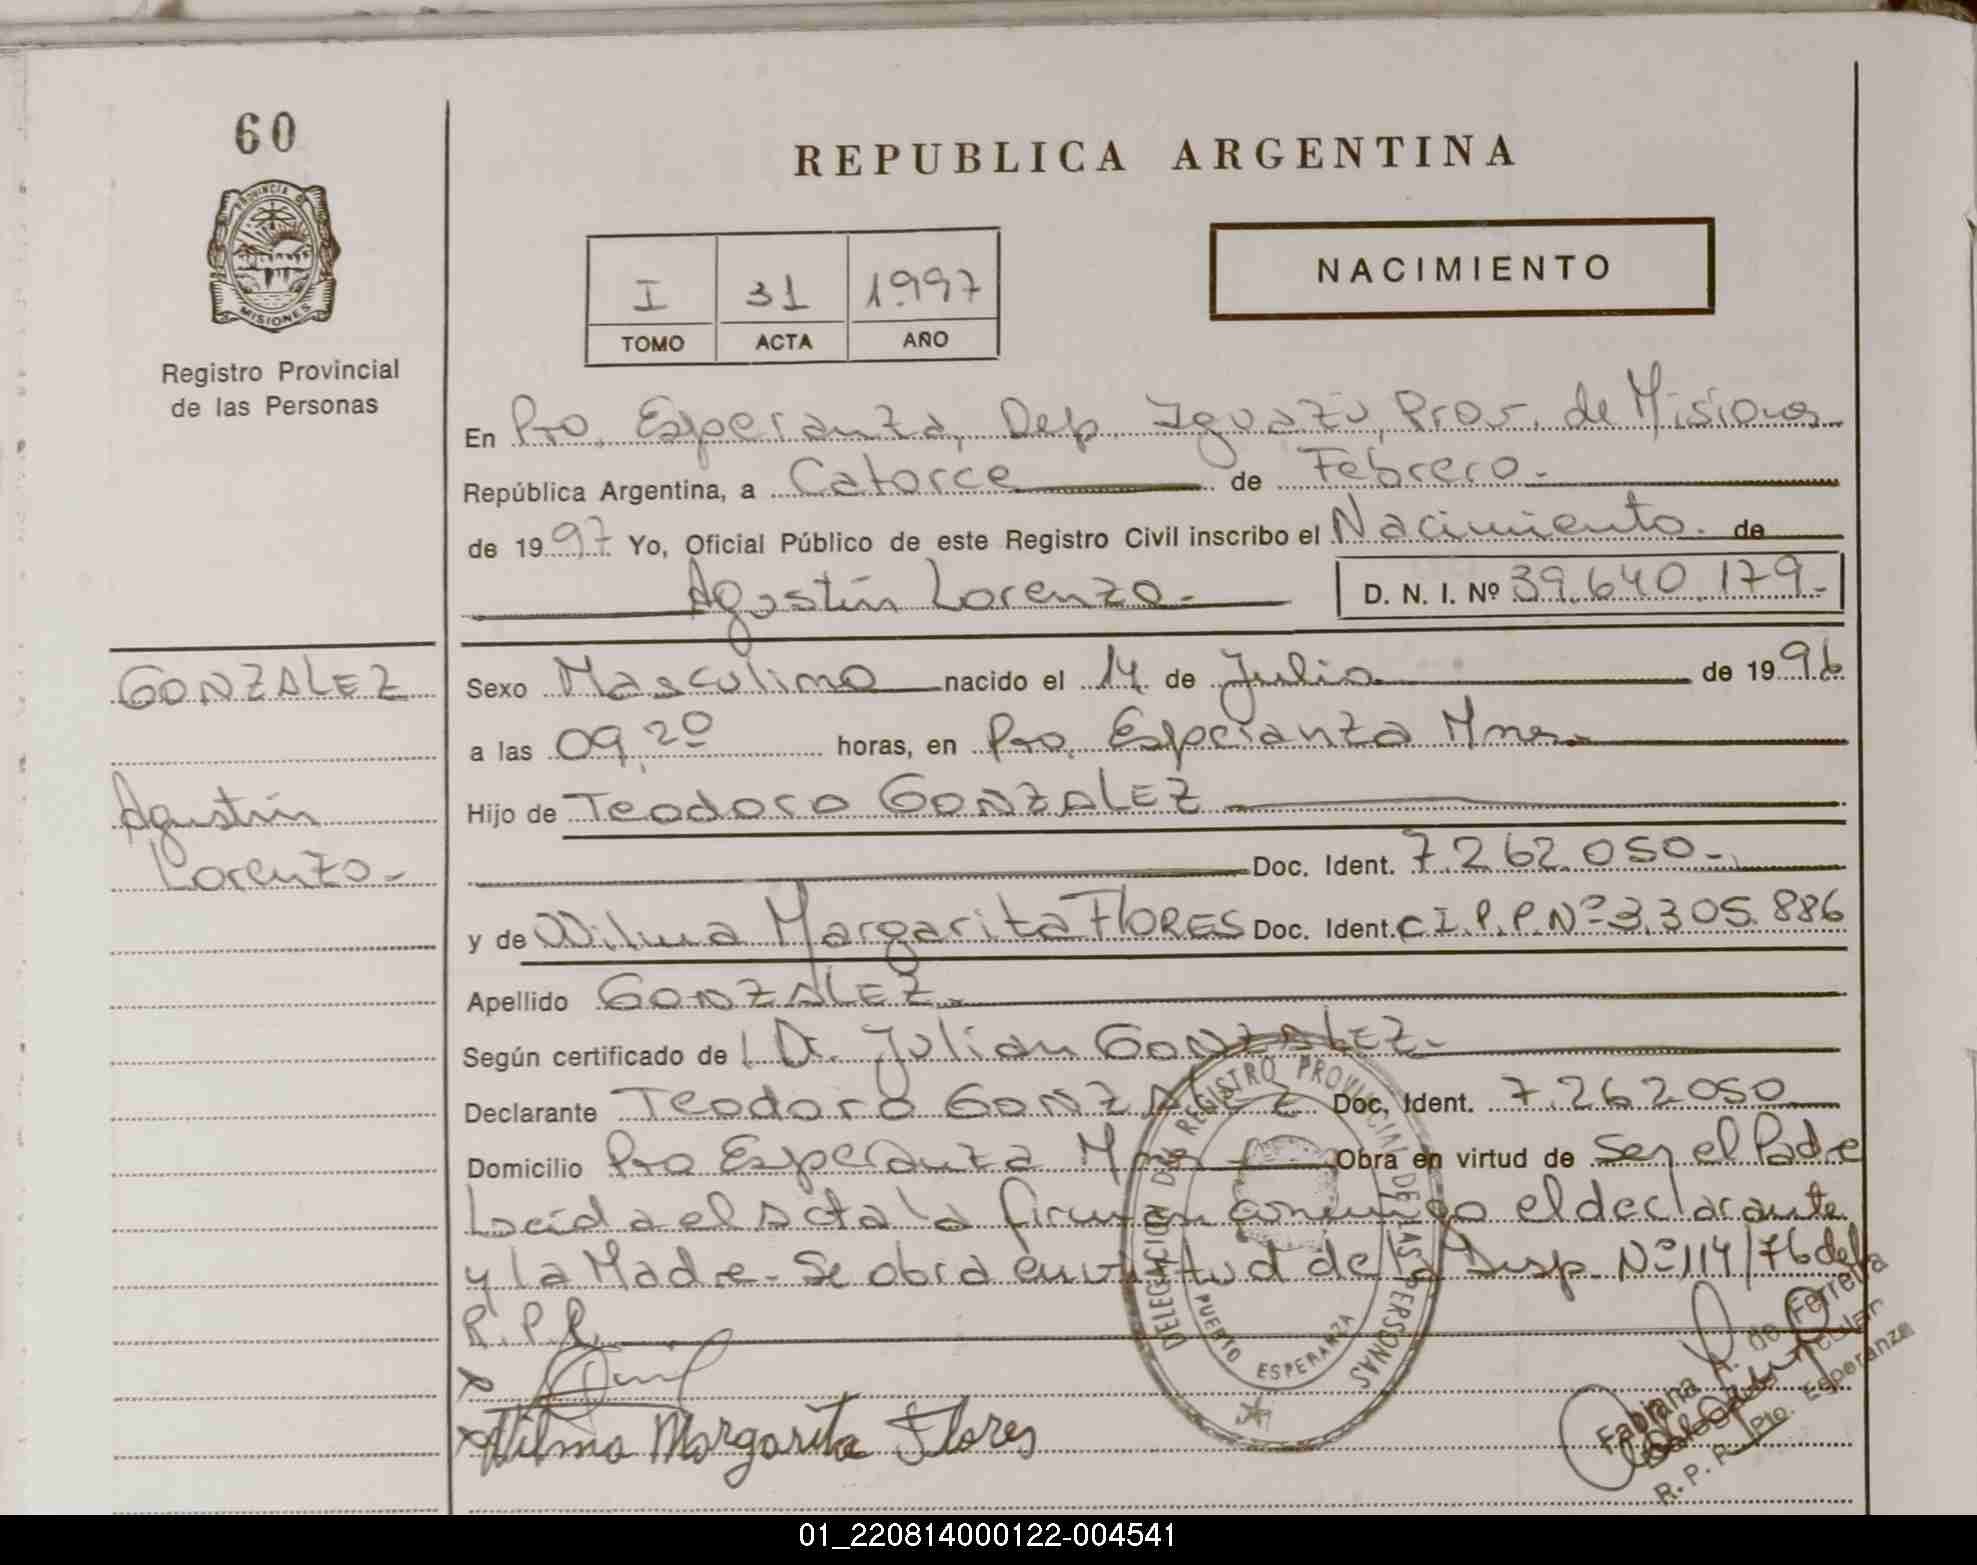 60
PROVINCIA DE
MISIONES
Registro Provincial
de las Personas
REPUBLICA ARGENTINA
I 31 1997
TOMO ACTA AÑO
NACIMIENTO
En Pto. Esperanza, Dep. Iguazú, Prov. de Misiones
República Argentina, a Catorce de Febrero.-
de 1997 Yo, Oficial Público de este Registro Civil inscribo el Nacimiento. de
Agustín Lorenzo.- D. N. I. Nº 39.640.179.-
GONZALEZ
Agustín
Lorenzo.-
Sexo Masculino nacido el 14 de Julio de 1996
a las 09,20 horas, en Pto. Esperanza Mnes.
Hijo de Teodoro GONZALEZ
Doc. Ident. 7.262.050.-
y de Wilma Margarita FLORES Doc. Ident. C.I.P.P.Nº 3.305.886
Apellido GONZALEZ.
Según certificado de Dr. Julian GONZALEZ.-
Declarante Teodoro GONZALEZ Doc. Ident. 7.262.050
Domicilio Pto Esperanza Mnes Obra en virtud de Ser el Padre
Leída el acta la firman conmigo el declarante
y la Madre.- Se obra en virtud de la Disp. Nº 114/76 de la
R.P.P.
x
x Wilma Margarita Flores
DELEGACION DEL REGISTRO PROVINCIAL DE LAS PERSONAS
PUERTO ESPERANZA
Fabiana A. de Ferreira
R. P. P. Pto. Esperanza
01_220814000122-004541